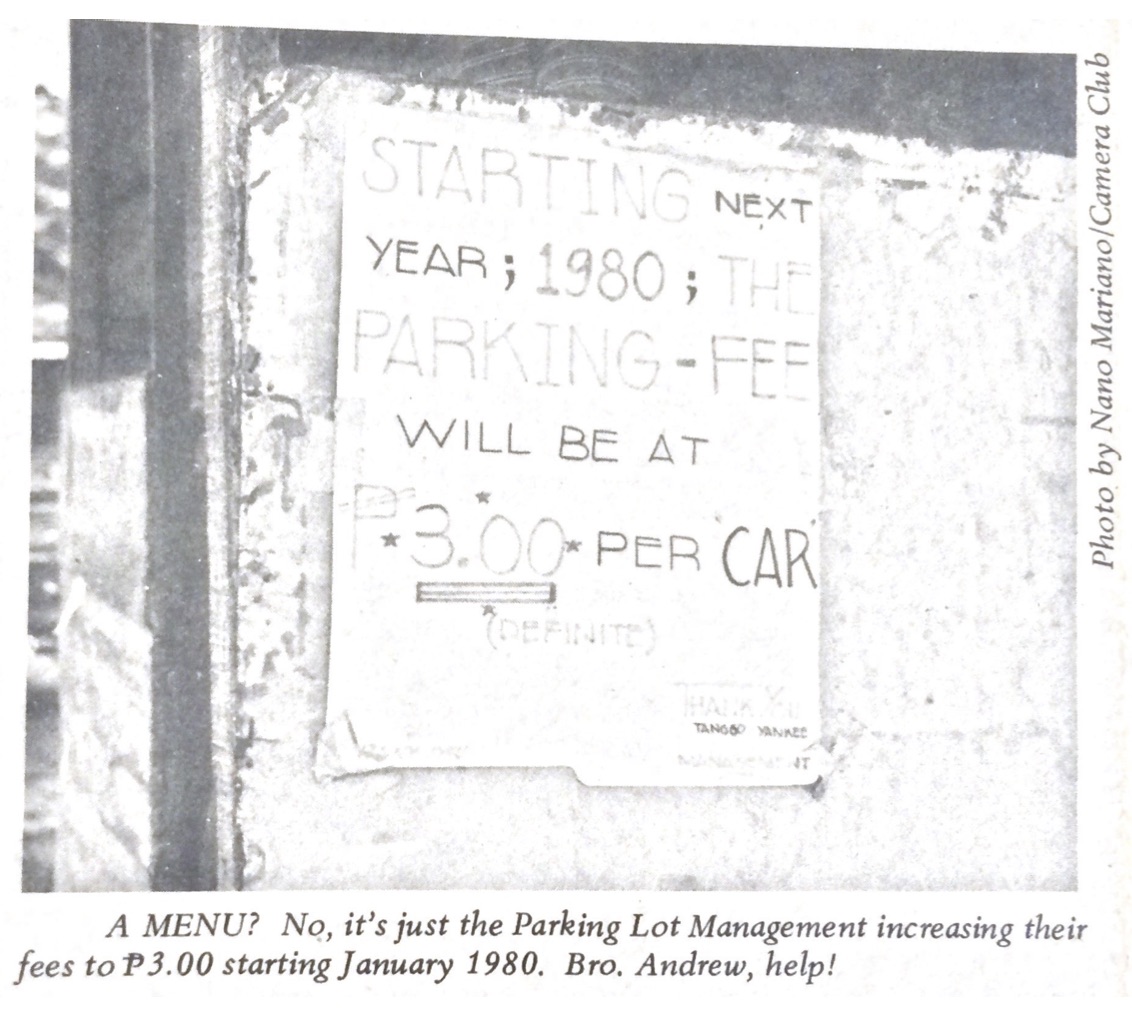 STARTING NEXT
YEAR ; 1980 ; THE
PARKING-FEE
WILL BE AT
₱3.00 PER 'CAR'
(DEFINITE)
THANK YOU
YANKEE
MANAGEMENT
Photo by Nano Mariano/Camera Club
A MENU? No, it's just the Parking Lot Management increasing their
fees to ₱3.00 starting January 1980. Bro. Andrew, help!